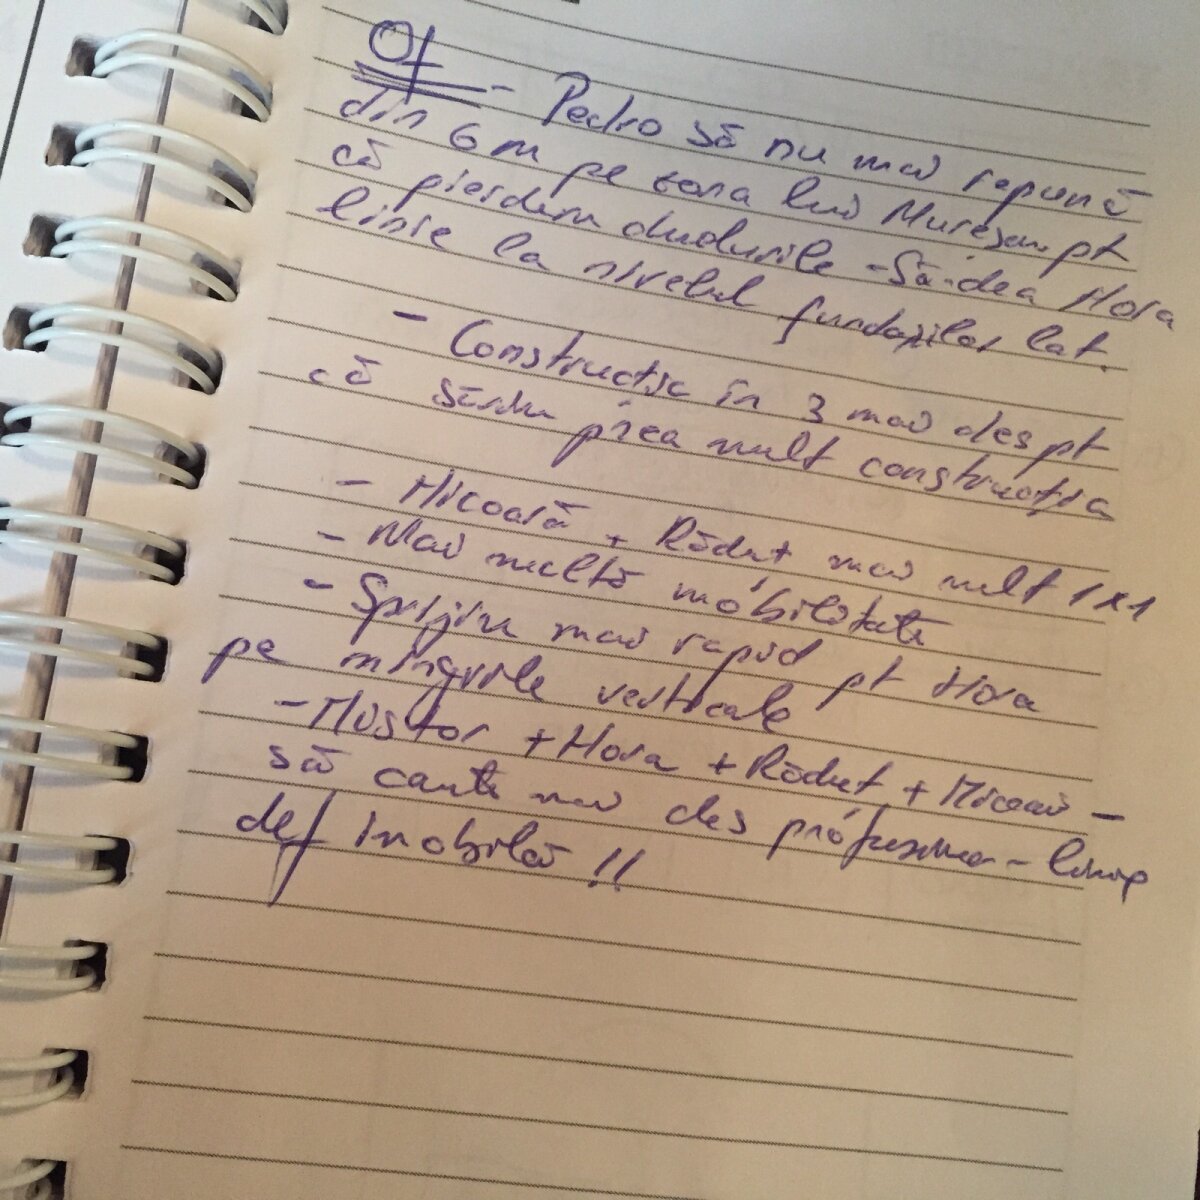 Of - Pedro să nu mai repună
din 6 m pe zona lui Mureșan pt
că pierdem duelurile - Să dea Hora
linie la nivelul fundașilor lat.
- Construcția în 3 mai des pt
că sărim prea mult construcția
- Micoară + Răduț mai mult 1x1
- Mai multă mobilitate
- Sprijin mai rapid pt Hora
pe mingiile verticale
- Nistor + Hora + Răduț + Micoară -
să caute mai des profunzimea -
def imobilă !!